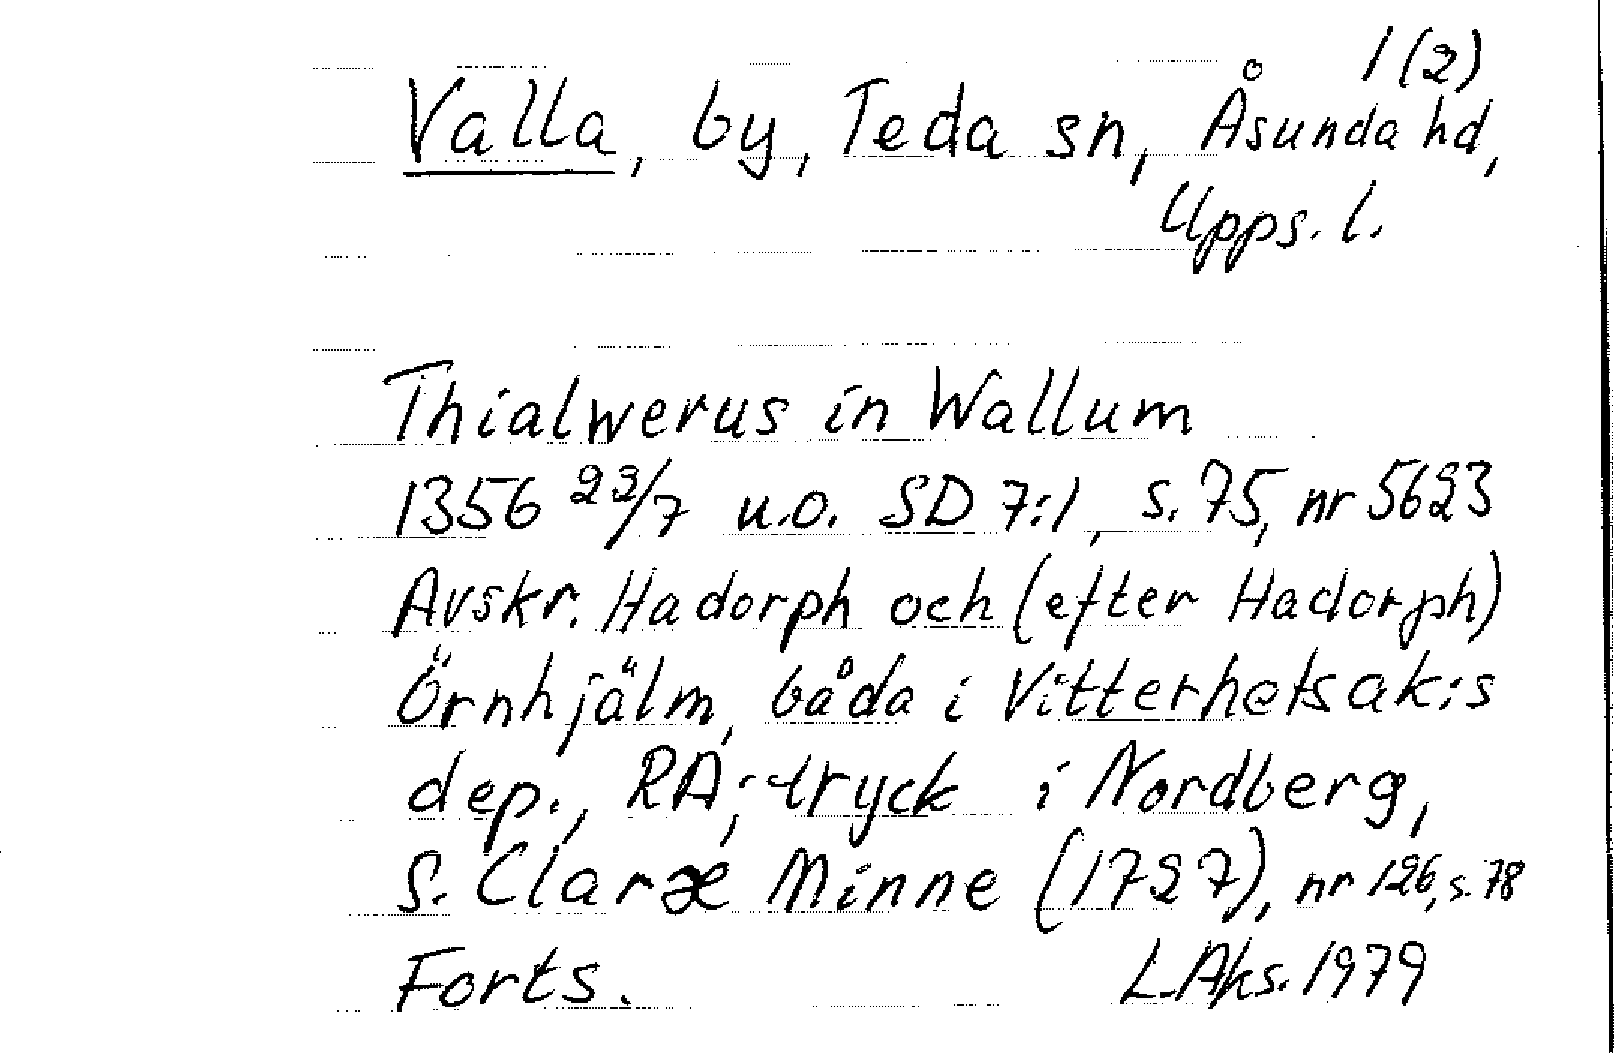 1(2)
Valla, by, Teda sn, Åsunda hd,
Upps. l.
Thialwerus in Wallum
1356 23/7 u.o. SD 7:1, s. 75, nr 5623
Avskr. Hadorph och (efter Hadorph)
Örnhjälm, båda i Vitterhetsak:s
dep., RA; tryck i Nordberg,
S. Claræ Minne (1727), nr 126, s. 78
Forts. L.Aks. 1979